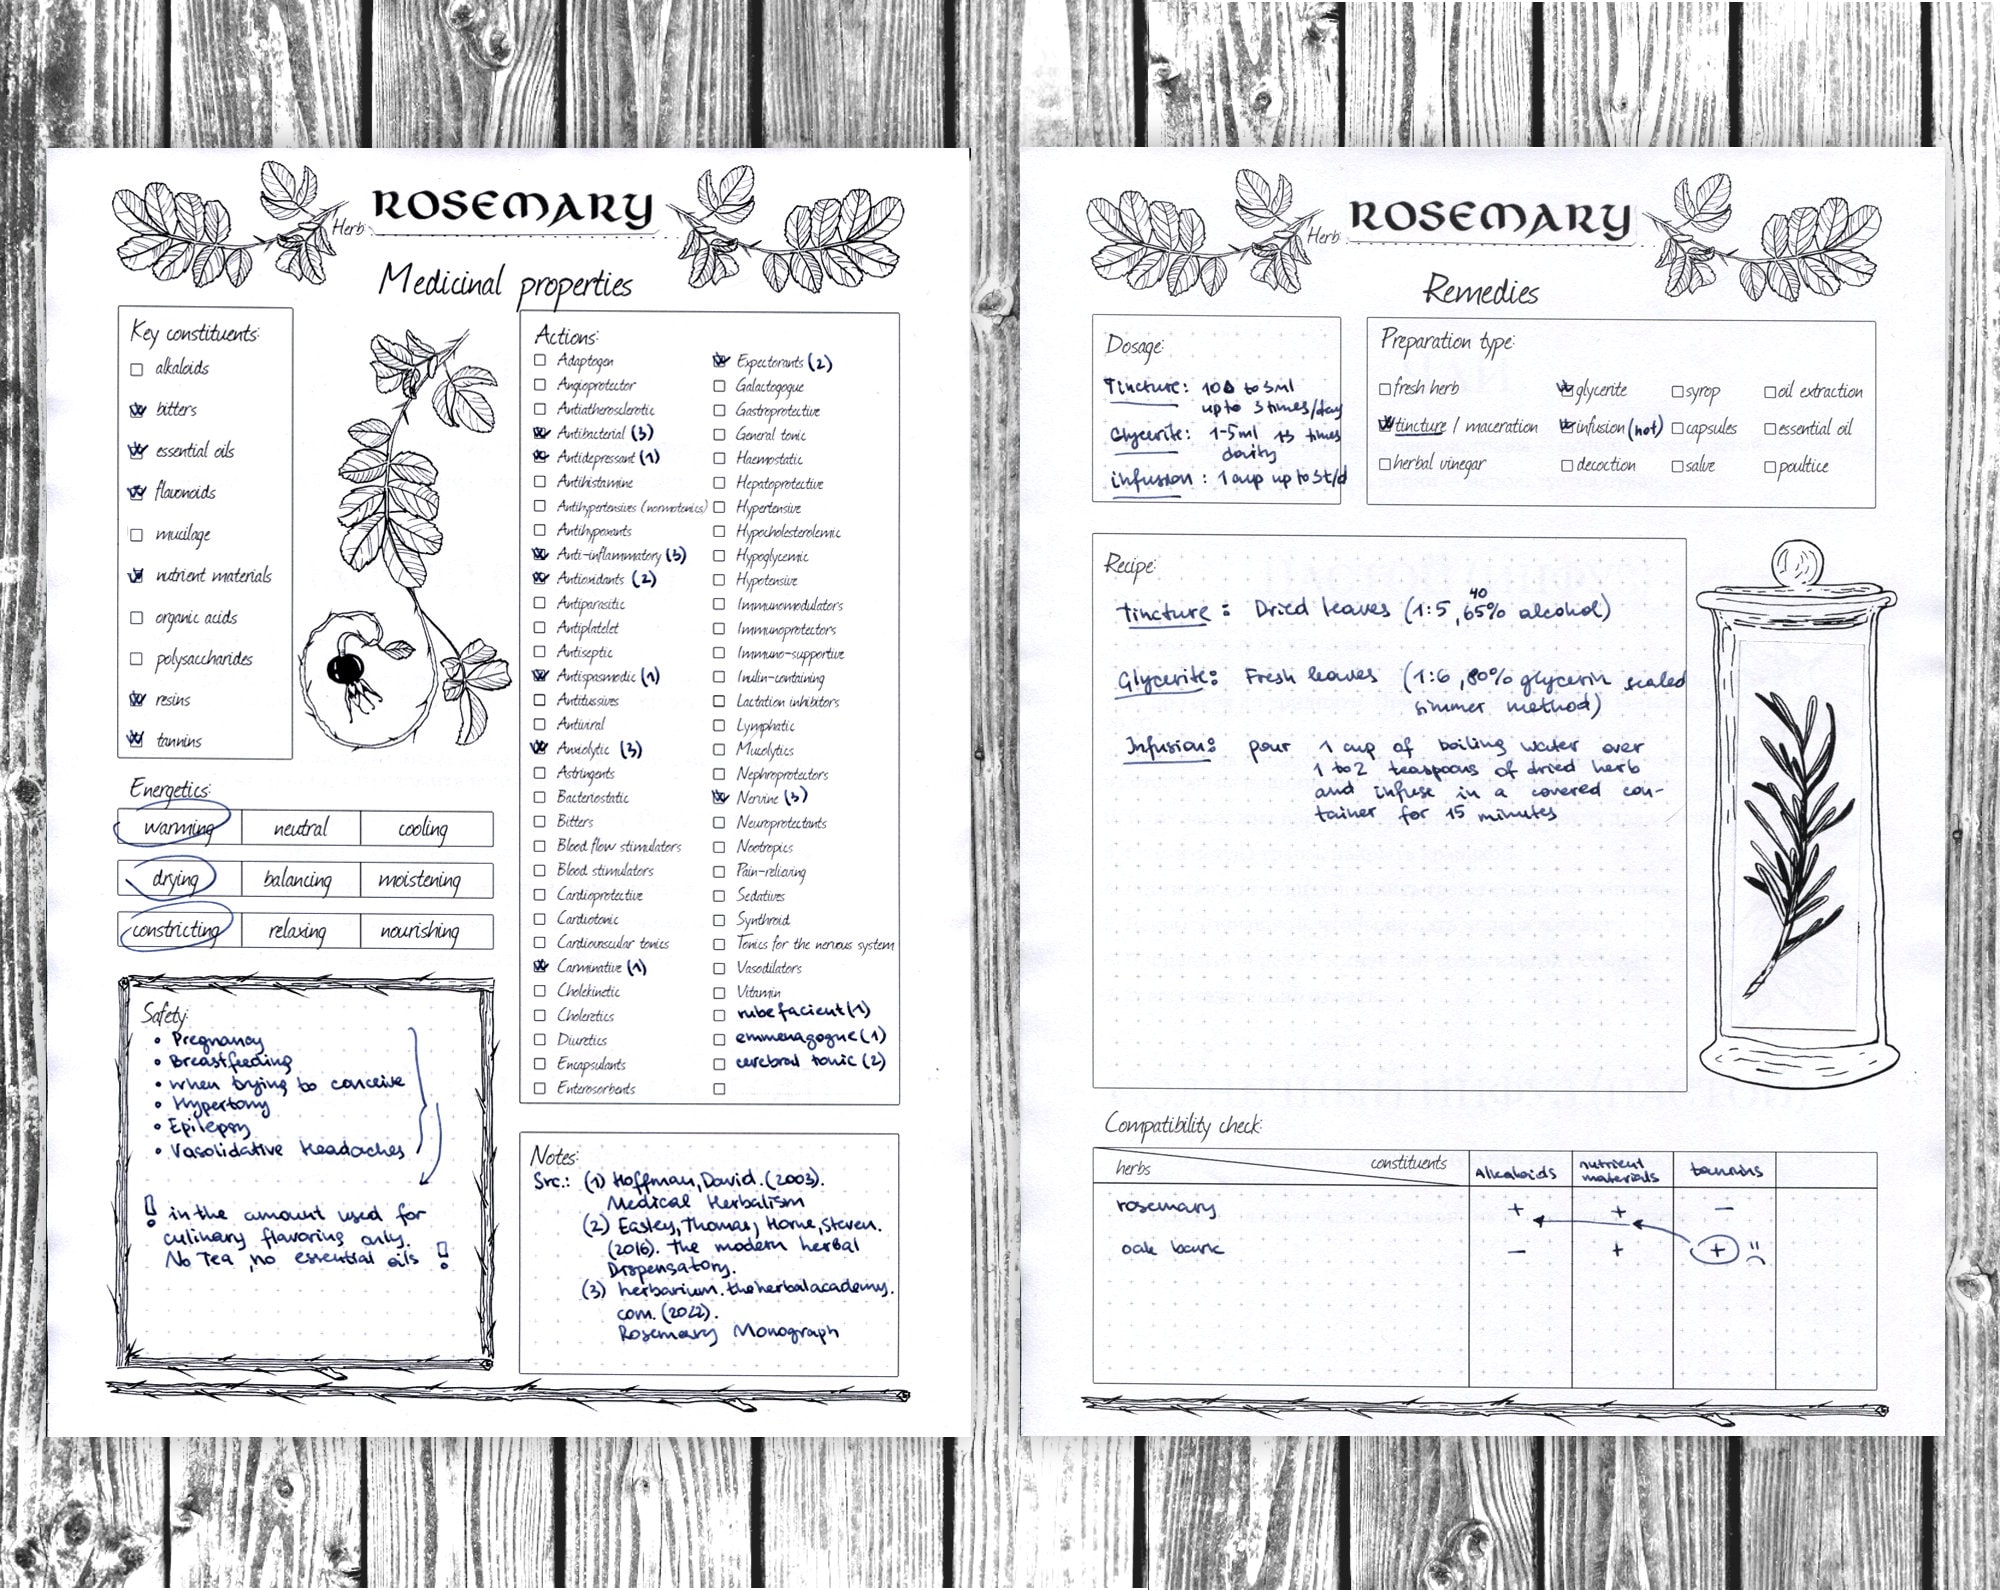 Herb: ROSEMARY
Medicinal properties
Key constituents:
alkaloids
bitters
essential oils
flavonoids
mucilage
nutrient materials
organic acids
polysaccharides
resins
tannins
Energetics:
warming neutral cooling
drying balancing moistening
constricting relaxing nourishing
Safety:
• Pregnancy
• Breastfeeding
• when trying to conceive
• Hypertony
• Epilepsy
• Vasolidative Headaches
! in the amount used for
culinary flavoring only.
No Tea, no essential oils !
Actions:
Adaptogen
Angioprotector
Antiatherosclerotic
Antibacterial (3)
Antidepressant (1)
Antihistamine
Antihypertensives (normotonics)
Antihypoxants
Anti-inflammatory (3)
Antioxidants (2)
Antiparasitic
Antiplatelet
Antiseptic
Antispasmodic (1)
Antitussives
Antiviral
Anxiolytic (3)
Astringents
Bacteriostatic
Bitters
Blood flow stimulators
Blood stimulators
Cardioprotective
Cardiotonic
Cardiovascular tonics
Carminative (1)
Cholekinetic
Choleretics
Diuretics
Encapsulants
Enterosorbents
Expectorants (2)
Galactogogue
Gastroprotective
General tonic
Haemostatic
Hepatoprotective
Hypertensive
Hypocholesterolemic
Hypoglycemic
Hypotensive
Immunomodulators
Immunoprotectors
Immuno-supportive
Inulin-containing
Lactation inhibitors
Lymphatic
Mucolytics
Nephroprotectors
Nervine (3)
Neuroprotectants
Nootropics
Pain-relieving
Sedatives
Synthroid
Tonics for the nervous system
Vasodilators
Vitamin
rubefacient (1)
emmenagogue (1)
cerebral tonic (2)
Notes:
Src.: (1) Hoffman, David. (2003).
Medical Herbalism
(2) Easley, Thomas, Horne, Steven.
(2016). The modern herbal
Dispensatory.
(3) herbarium.theherbalacademy.
com. (2022).
Rosemary Monograph
Herb: ROSEMARY
Remedies
Dosage:
Tincture: to 5ml
up to 3 times/day
Glycerite: 1-5ml times
infusion: 1 cup up to 3t/d
Preparation type:
fresh herb glycerite syrop oil extraction
tincture / maceration infusion (hot) capsules essential oil
herbal vinegar decoction salve poultice
Recipe:
40
Tincture: Dried leaves (1:5, 65% alcohol)
Glycerite: Fresh leaves (1:6, 80% glycerin sealed
simmer method)
Infusion: pour 1 cup of boiling water over
1 to 2 teaspoons of dried herb
and infuse in a covered con-
tainer for 15 minutes
Compatibility check:
herbs constituents Alkaloids nutrient materials tannins
rosemary + + −
oak bark − + +